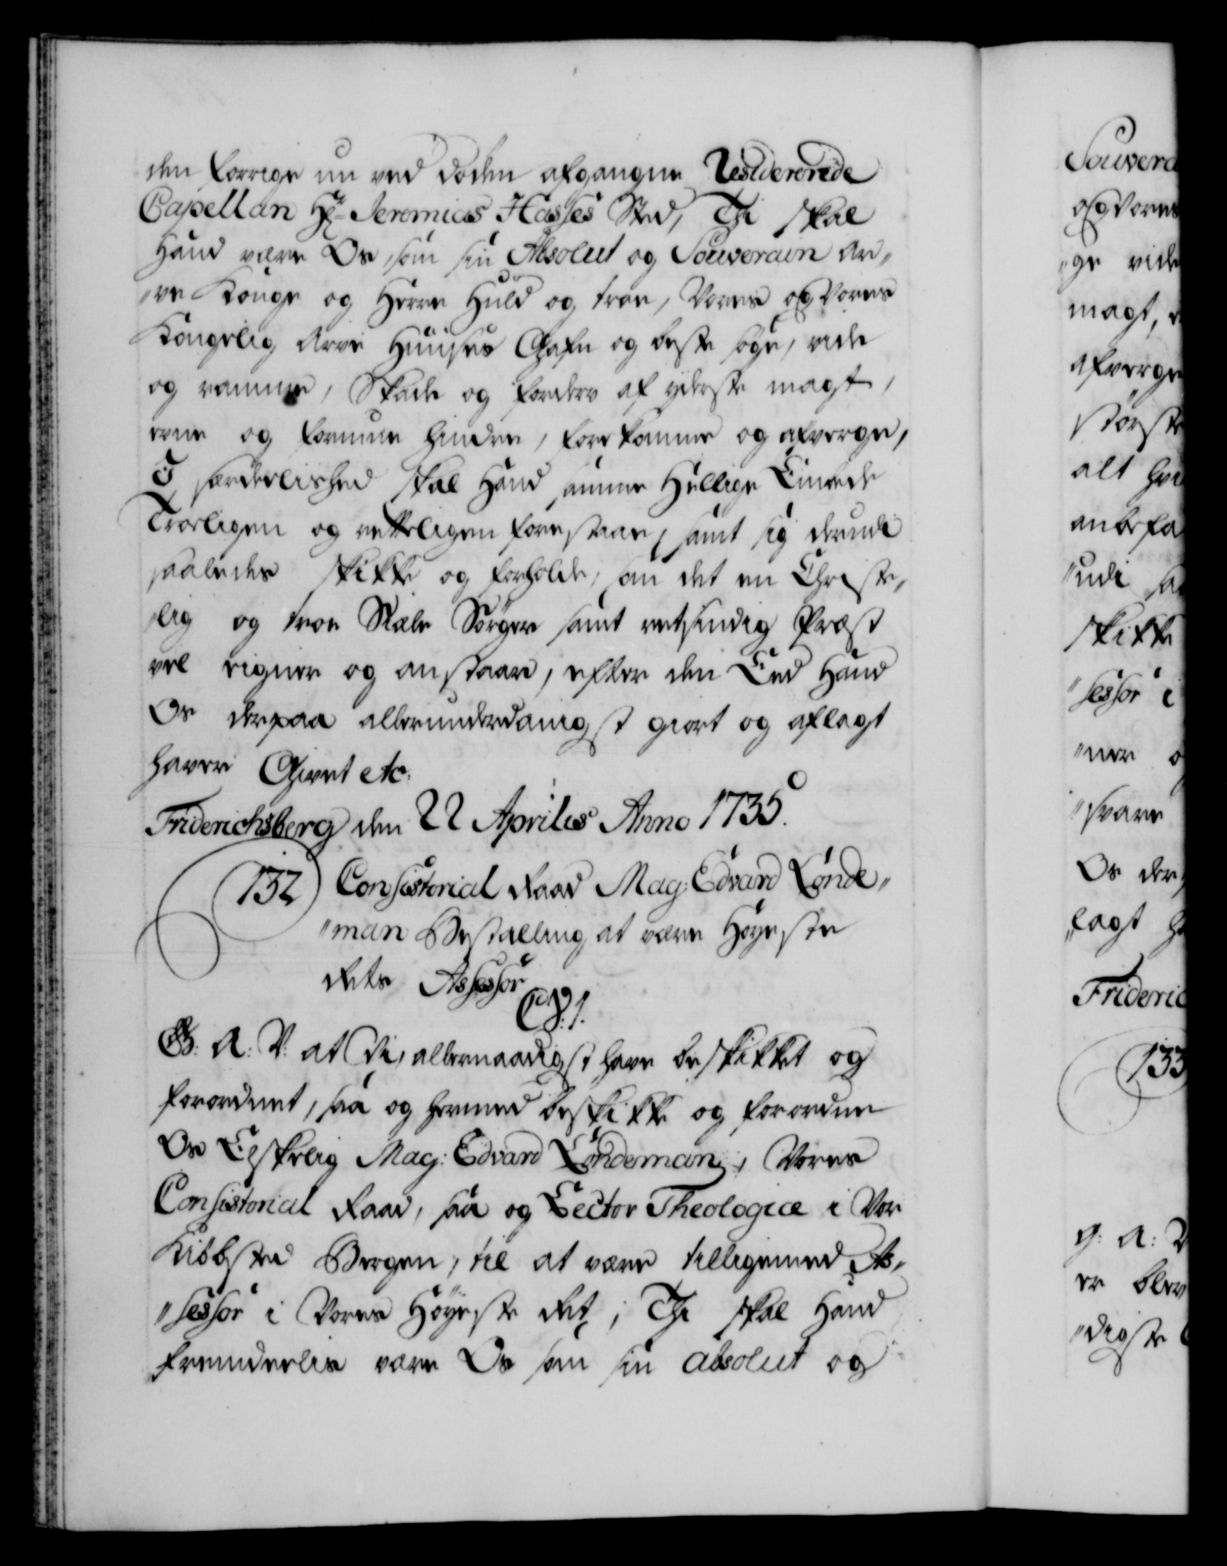 den forrige nu ved døden afgangne Residerende
Capellan Hr Jeremias Hasses Sted, Thi skal
Hand være Os som sin Absolut og Souverain Ar„
„ve Konge og Herre Huld og troe, Vores og Vores
Kongelig Arve Huuses Gafn og beste søge, vide
og ramme, Skade og fordærv af yderste magt,
evne og formue hindre, forekomme og afverge,
I særdelished skal Hand samme Hellige Embede
Troeligen og retteligen forestaae, samt sig derudi
saaledes skikke og forholde, som det en Christe„
„lig og troe Siæle Sørger samt retsindig Præst
vel eigner og anstaaer, efter den Eed Hand
Os derpaa allerunderdanigst giort og aflagt
haver Givet etc.
Friderichsberg den 22 Aprilis Anno 1735.
132 Consistorial Raad Mag: Edvard Londe„
„man Bestalling at være Høyeste
Rets Assessor
C. VI.
G: A: V: at Vi, allernaadigst have beskikket og
forordnet, saa og hermed beskikke og forordne
Os Elskelig Mag: Edvard Londeman, Vores
Consistorial Raad, saa og Lector Theologiæ i Vor
Kiøbsted Bergen, til at være tilligemed As„
„sessor i Vores Høyeste Ret; Thi skal Hand
fremdeelis være Os som sin absolut og
Souvera
og Vores
„ge vide
magt, e
afverge
største
alt hvi
anbefa
„udi sa
skikke
„sessor i
„ner o
„svare
Os der
„lagt h
Frideric
133
G: A: V
er blev
„digste